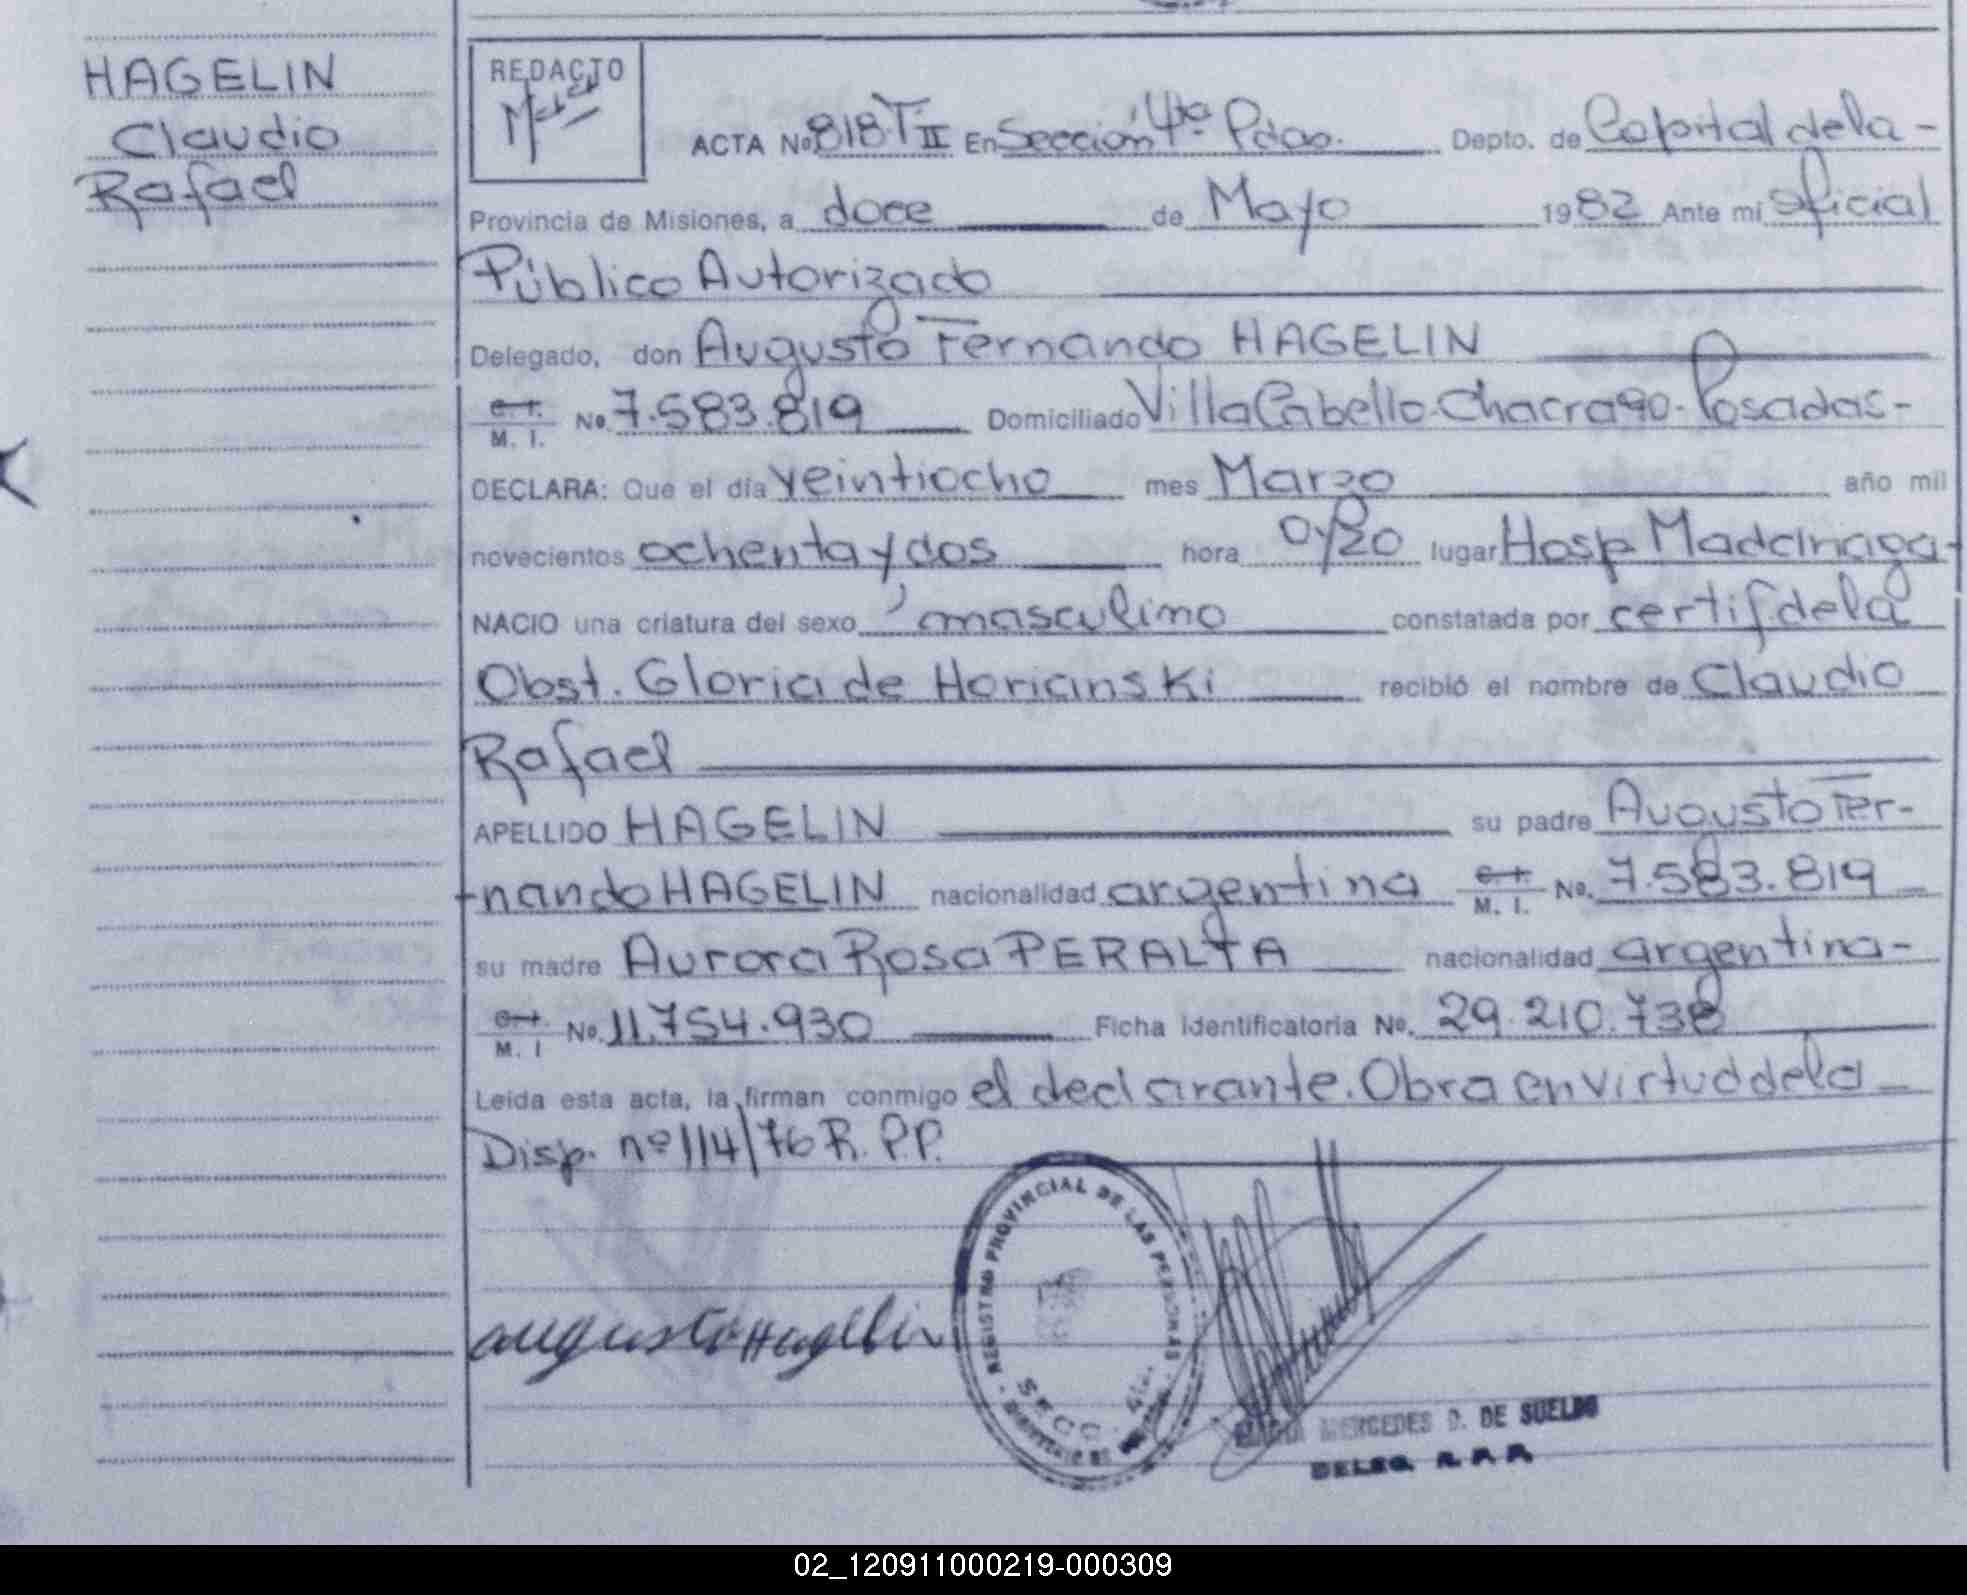 HAGELIN
Claudio
Rafael
REDACTO
ACTA No 818 T II En Sección 4ta Pdas. Depto. de Capital de la -
Provincia de Misiones, a doce de Mayo 1982 Ante mi Oficial
Público Autorizado
Delegado, don Augusto Fernando HAGELIN
C. I. M. I. No. 7.583.819 Domiciliado Villa Cabello-Chacra 90-Posadas-
DECLARA: Que el día veintiocho mes Marzo año mil
novecientos ochenta y dos hora 0y20 lugar Hosp Madariaga-
NACIO una criatura del sexo masculino constatada por certif de la
Obst. Gloria de Horianski recibió el nombre de Claudio
Rafael
APELLIDO HAGELIN su padre Augusto Fer-
-nando HAGELIN nacionalidad argentina C. I. M. I. No. 7.583.819
su madre Aurora Rosa PERALTA nacionalidad argentina-
C. I. M. I No. 11.754.930 Ficha Identificatoria No. 29.210.738
Leída esta acta, la firman conmigo el declarante. Obra en virtud de la
Disp. nº 114/76 R.P.P.
REGISTRO PROVINCIAL DE LAS PERSONAS
SECC. 4ta.
augusto Hagelin
MERCEDES D. DE SUELDO
DELEG. R. P. P.
02_120911000219-000309